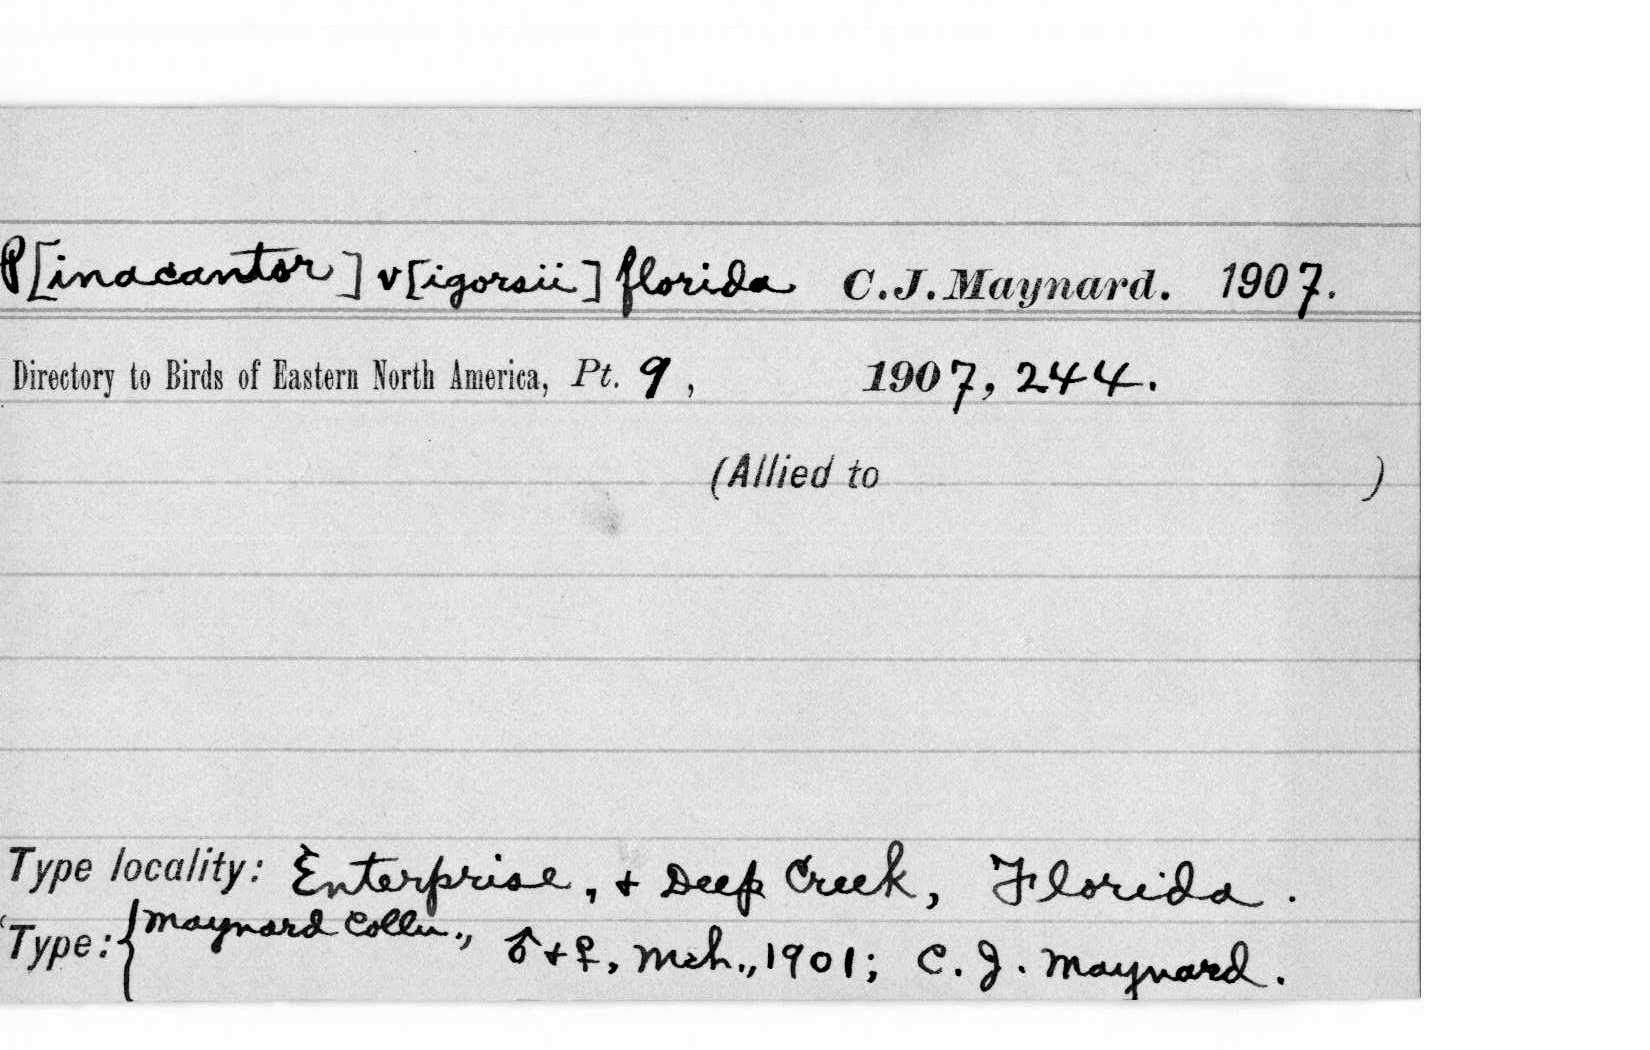 P[inacantor] v[igorsii] florida C.J. Maynard. 1907.
Directory to Birds of Eastern North America, Pt. 9, 1907, 244.
(Allied to )
Type locality: Enterprise, + Deep Creek, Florida.
Type: { Maynard Colln., ♂ + ♀, Mch., 1901; C. J. Maynard.